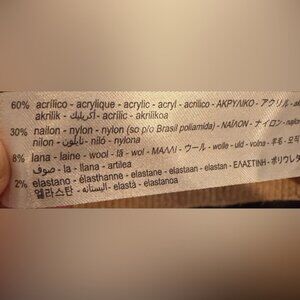 60% acrílico - acrylique - acrylic - acryl - acrilico - ΑΚΡΥΛΙΚΟ - アクリル -
akrilik - أكريليك - acrílic - akrilikoa
30% nailon - nylon - nylon (so p/o Brasil poliamida) - ΝΑΪΛΟΝ - ナイロン - nailon
nilon - نايلون - niló - nylona
8% lana - laine - wool - lã - wol - ΜΑΛΛΙ - ウール - wolle - uld - volna - 羊毛 - 모직
صوف - la - llana - artilea
2% elastano - élasthanne - elastane - elastaan - elastan - ΕΛΑΣΤΙΝΗ - ポリウレタ
엘라스탄 - اليستانه - elastà - elastanoa